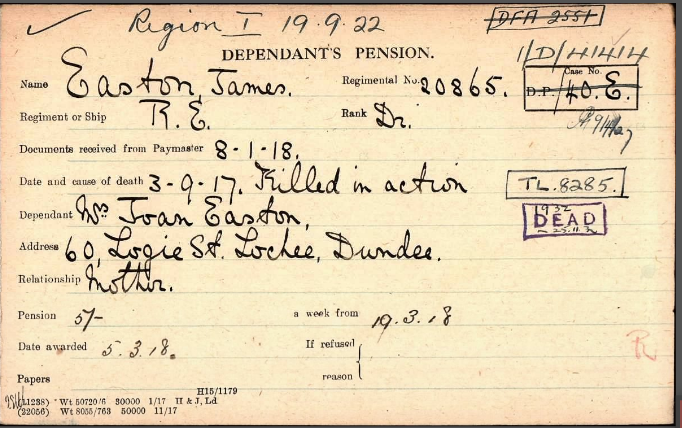 ✓ Region I 19.9.22 DFA 2551
DEPENDANT'S PENSION. 1/D/41414
Name Easton, James. Regimental No. 20865. Case No.
D.P./40.E.
Regiment or Ship R.E. Rank Dr.
Documents received from Paymaster 8-1-18.
Date and cause of death 3-9-17. Killed in action TL.8285.
Dependant Mrs Joan Easton, 1932 DEAD
Address 60, Logie St. Lochee, Dundee.
Relationship Mother.
Pension 5/- a week from 19.3.18
Date awarded 5.3.18. If refused
reason
Papers
H15/1179
(11238) Wt 50720/6 30000 1/17 H & J, Ld
(22056) Wt 8055/763 50000 11/17